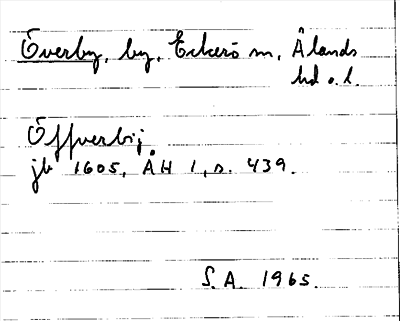 Överby, by, Eckerö sn, Ålands
hd o. l.
Öffverbij
jb 1605, ÅH 1, s. 439.
S.A. 1965.